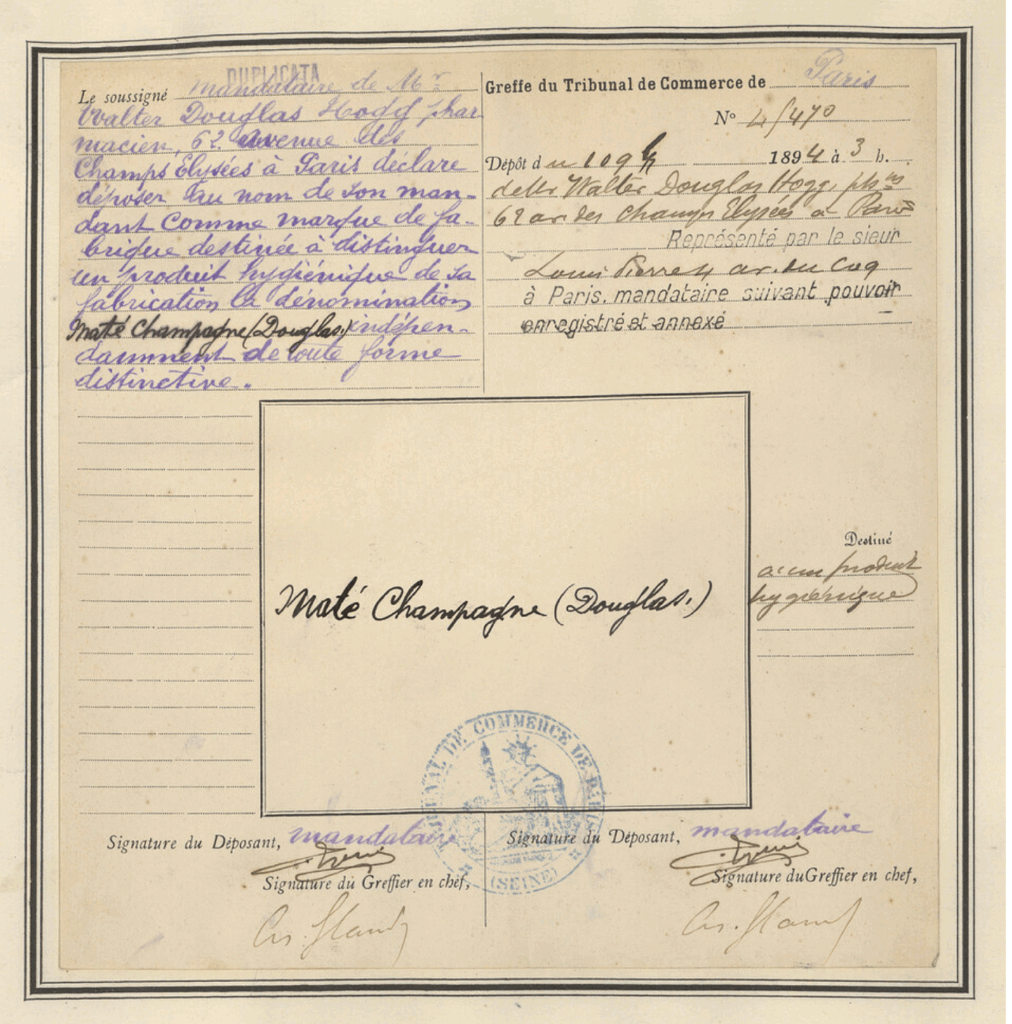 DUPLICATA
Le soussigné mandataire de Mr
Walter Douglas Hogg phar
macien, 62 avenue des
Champs Elysées à Paris déclare
déposer au nom de son man-
dant comme marque de fa-
brique destinée à distinguer
un produit hygiénique de sa
fabrication la dénomination
Maté Champagne (Douglas.) indépen-
damment de toute forme
distinctive.
Greffe du Tribunal de Commerce de Paris
N° 4/470
Dépôt du 1894 à 3 h.
de Mr Walter Douglas Hogg, phen
62 av. des Champs Elysées à Paris
Représenté par le sieur
Louis Pierre av. du Coq
à Paris, mandataire suivant pouvoir
enregistré et annexé
Maté Champagne (Douglas.)
Destiné
à un produit
hygiénique
TRIBUNAL DE COMMERCE DE PARIS
(SEINE)
Signature du Déposant, mandataire
Signature du Greffier en chef,
Signature du Déposant, mandataire
Signature du Greffier en chef,